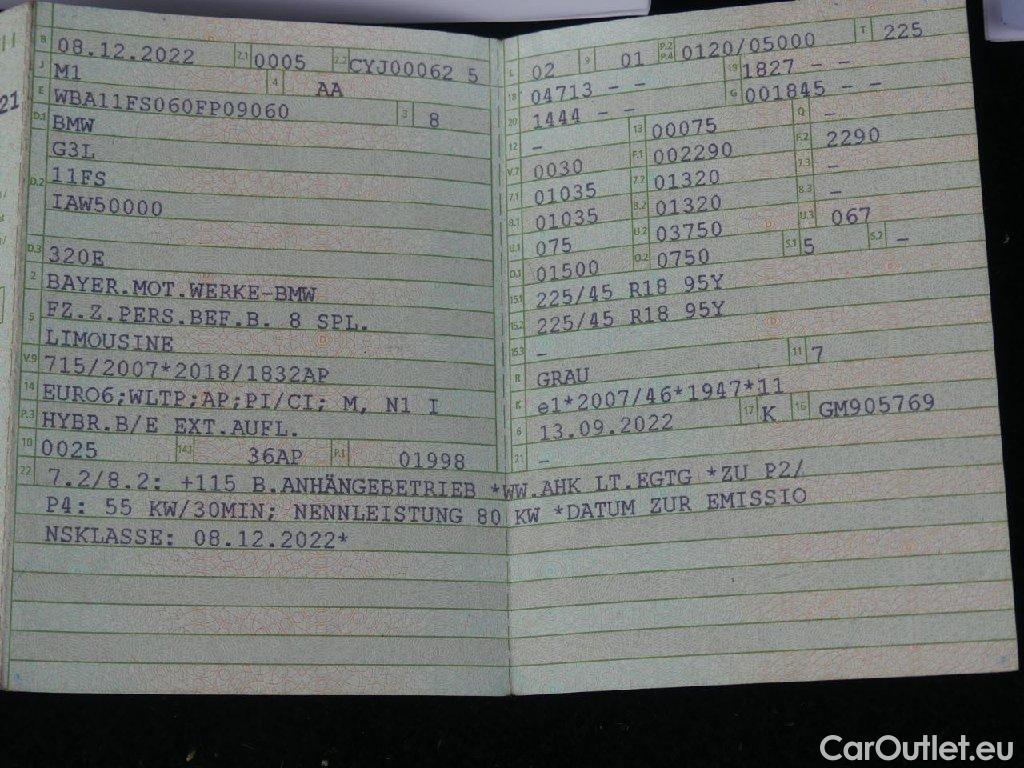 21
B 08.12.2022 2.1 0005 2.2 CYJ00062 5
J M1 4 AA
E WBA11FS060FP09060 3 8
D.1 BMW
G3L
D.2 11FS
IAW50000
D.3 320E
2 BAYER.MOT.WERKE-BMW
5 FZ.Z.PERS.BEF.B. 8 SPL.
LIMOUSINE
V.9 715/2007*2018/1832AP
14 EURO6;WLTP;AP;PI/CI; M, N1 I
P.3 HYBR.B/E EXT.AUFL.
10 0025 14.1 36AP P.1 01998
L 02 9 01 P.2 P.4 0120/05000 T 225
18 04713 - - 19 1827 - -
20 1444 - - G 001845 - -
12 - 13 00075 Q -
V.7 0030 F.1 002290 F.2 2290
7.1 01035 7.2 01320 7.3 -
8.1 01035 8.2 01320 8.3 -
U.1 075 U.2 03750 U.3 067
O.1 01500 O.2 0750 S.1 5 S.2 -
15.1 225/45 R18 95Y
15.2 225/45 R18 95Y
15.3 -
R GRAU 11 7
K e1*2007/46*1947*11
6 13.09.2022 17 K 16 GM905769
21 -
22 7.2/8.2: +115 B.ANHÄNGEBETRIEB *WW.AHK LT.EGTG *ZU P2/
P4: 55 KW/30MIN; NENNLEISTUNG 80 KW *DATUM ZUR EMISSIO
NSKLASSE: 08.12.2022*
CarOutlet.eu